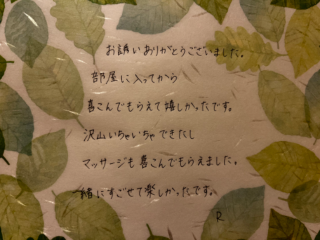 お誘いありがとうございました。
部屋に入ってから
喜こんでもらえて嬉しかったです。
沢山いちゃいちゃできたし
マッサージも喜こんでもらえました。
一緒にすごせて楽しかったです。
R